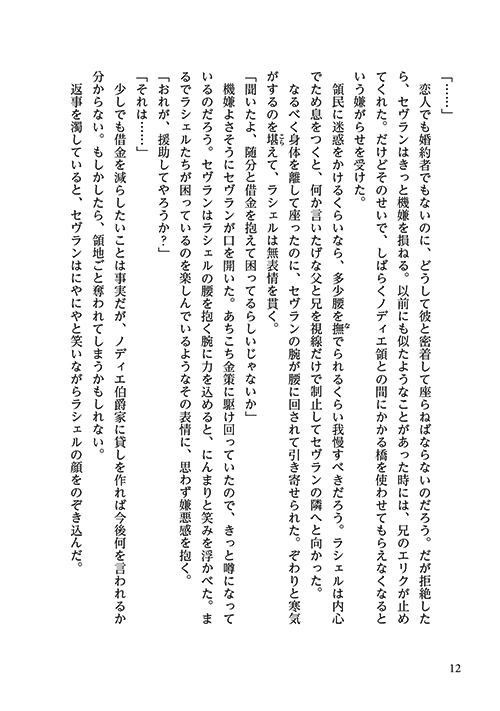 「……」
　恋人でも婚約者でもないのに、どうして彼と密着して座らねばならないのだろう。だが拒絶した
ら、セヴランはきっと機嫌を損ねる。以前にも似たようなことがあった時には、兄のエリクが止め
てくれた。だけどそのせいで、しばらくノディエ領との間にかかる橋を使わせてもらえなくなると
いう嫌がらせを受けた。
　領民に迷惑をかけるくらいなら、多少腰を撫でられるくらい我慢すべきだろう。ラシェルは内心
な
でため息をつくと、何か言いたげな父と兄を視線だけで制止してセヴランの隣へと向かった。
　なるべく身体を離して座ったのに、セヴランの腕が腰に回されて引き寄せられた。ぞわりと寒気
がするのを堪えて、ラシェルは無表情を貫く。
こら
「聞いたよ、随分と借金を抱えて困ってるらしいじゃないか」
　機嫌よさそうにセヴランが口を開いた。あちこち金策に駆け回っていたので、きっと噂になって
いるのだろう。セヴランはラシェルの腰を抱く腕に力を込めると、にんまりと笑みを浮かべた。ま
るでラシェルたちが困っているのを楽しんでいるようなその表情に、思わず嫌悪感を抱く。
「おれが、援助してやろうか？」
「それは……」
　少しでも借金を減らしたいことは事実だが、ノディエ伯爵家に貸しを作れば今後何を言われるか
分からない。もしかしたら、領地ごと奪われてしまうかもしれない。
　返事を濁していると、セヴランはにやにやと笑いながらラシェルの顔をのぞき込んだ。
12